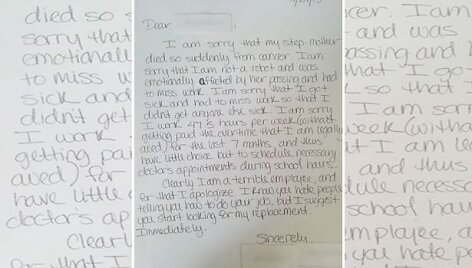 Dear
I am sorry that my step-mother
died so suddenly from cancer. I am
sorry that I am not a robot and was
emotionally affected by her passing and had
to miss work. I am sorry that I got
sick and had to miss work so that I
didnt get anyone else sick. I am sorry
I work 47.5 hours per week (without
getting paid the overtime that I am legally
owed) for the last 7 months, and thus
have little choice but to schedule necessary
doctors appointments during school hours.
Clearly I am a terrible employee, and
for that I apologize. I know you hate people
telling you how to do your job, but I suggest
you start looking for my replacement.
Immediately.
Sincerely,
died so s
sorry that
emotionall
to miss w
sick and
didnt get
I work
getting pai
owed) for
have little
doctors ap
Clearl
for that I
cer. I am
and was
assing and
that I go
so that I
I am sorr
week (witho
t I am le
and thus
dule necess
school hou
mployee, a
you hate p